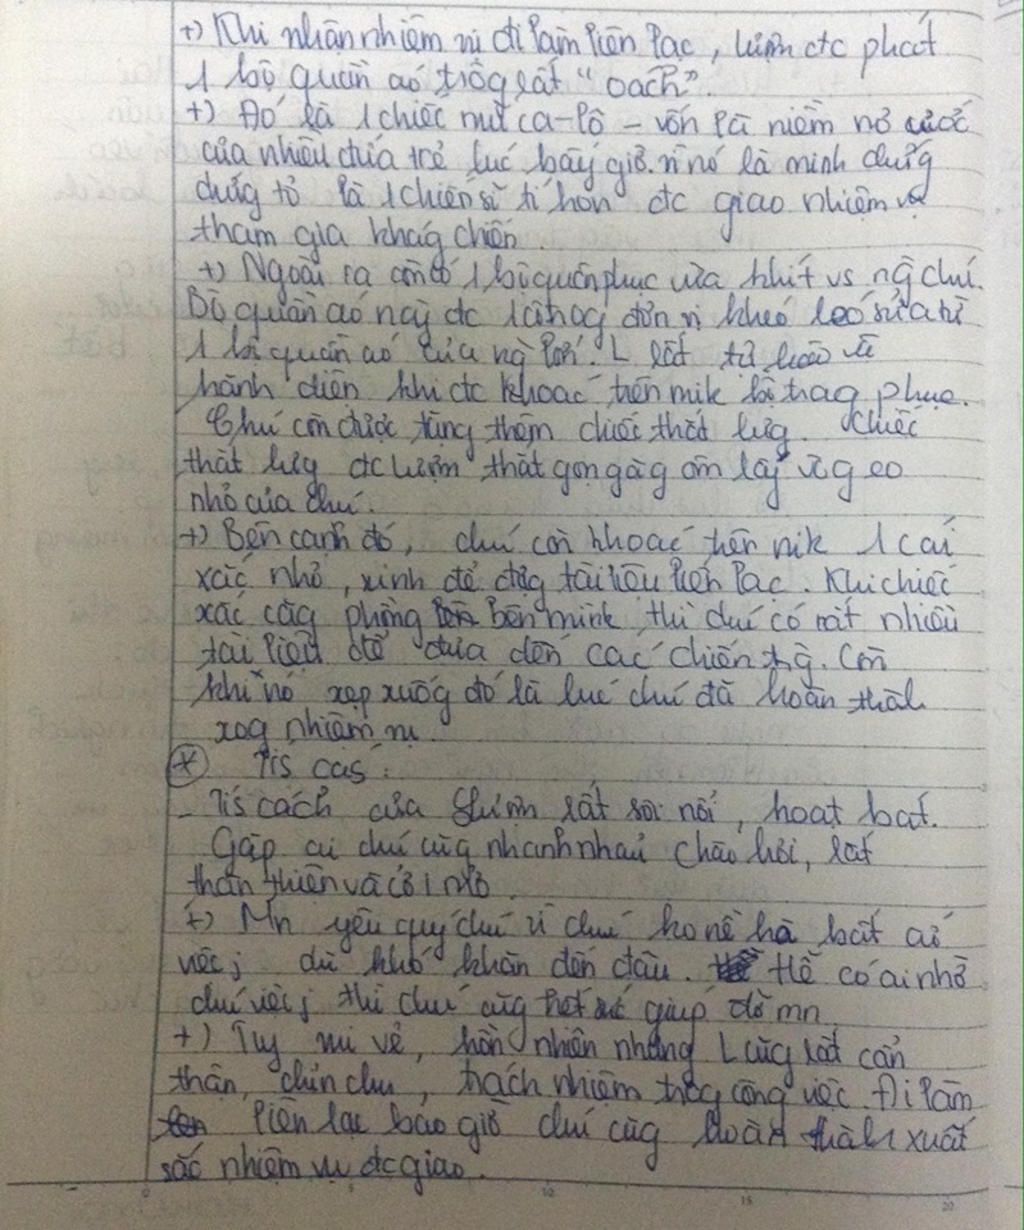 +) Khi nhận nhiệm vụ đi làm liên lạc, Lượm đc phát
1 bộ quần áo trôg rất "oách".
+) Đó là 1 chiếc mũ ca-lô - vốn là niềm mơ ước
của nhiều đứa trẻ lúc bấy giờ. vì nó là minh chứg
chứg tỏ là 1 chiến sĩ tí hon đc giao nhiệm vụ
tham gia khág chiến.
+) Ngoài ra còn có 1 bộ quân phục vừa khít vs ng` chú.
Bộ quần áo này đc khéo léo sửa từ
1 bộ quần áo của ng` lớn. L rất tự hào và
hãnh diện khi đc khoác trên mik bộ trag phục.
Chú còn được tặng thêm chiếc thắt lưg. Chiếc
thắt lưg đc Lượm thắt gọn gàg ôm lấy vòg eo
nhỏ của chú.
+) Bên cạnh đó, chú còn khoác trên mik 1 cái
xắc nhỏ, xinh để đựg tài liệu liên lạc. Khi chiếc
xắc căg phồng bên mình thì chú có rất nhiều
tài liệu để đưa đến các chiến
khi nó xẹp xuốg đó là lúc chú đã hoàn thàh
xog nhiệm vụ.
* Tíh cáh:
- Tíh cách của Lượm rất sôi nổi, hoạt bát.
Gặp ai chú cũg nhanh nhảu chào hỏi, rất
thân thiện và cởi mở.
+) Mn yêu quý chú vì chú ko nề hà bất cứ
việc j dù khó khăn đến đâu. Hễ có ai nhờ
chú việc j thì chú cũg hết sức giúp đỡ mn
+) Tuy vui vẻ, hồn nhiên nhưng L cũg rất cẩn
thận, chỉn chu, trách nhiệm trog công việc. Đi làm
liên lạc bao giờ chú cũg hoàn thành xuất
sắc nhiệm vụ đc giao.